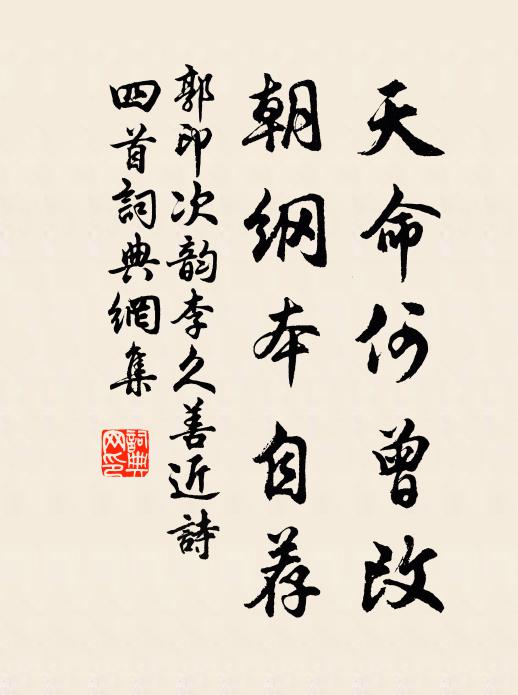 天命何曾改
朝綱本自荐
郭印次韵李久善近詩
四首詞典網集
詞典
网印